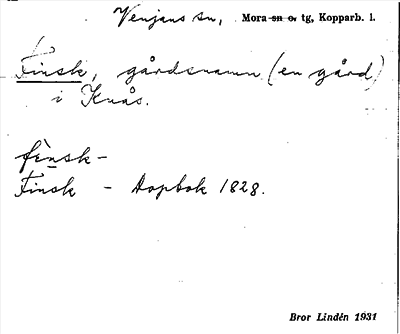 Venjans sn, Mora sn o. tg, Kopparb. l.
Finsk, gårdsnamn (en gård)
i Knås.
fènsk-
Finsk - Dopbok 1828.
Bror Lindén 1931